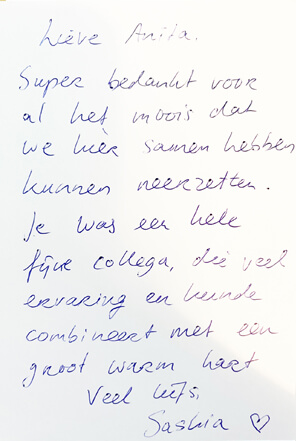 Lieve Anita.
Super bedankt voor
al het moois dat
we hier samen hebben
kunnen neerzetten.
Je was een hele
fijne collega, die veel
ervaring en kunde
combineert met een
groot warm hart
Veel liefs,
Saskia ♡